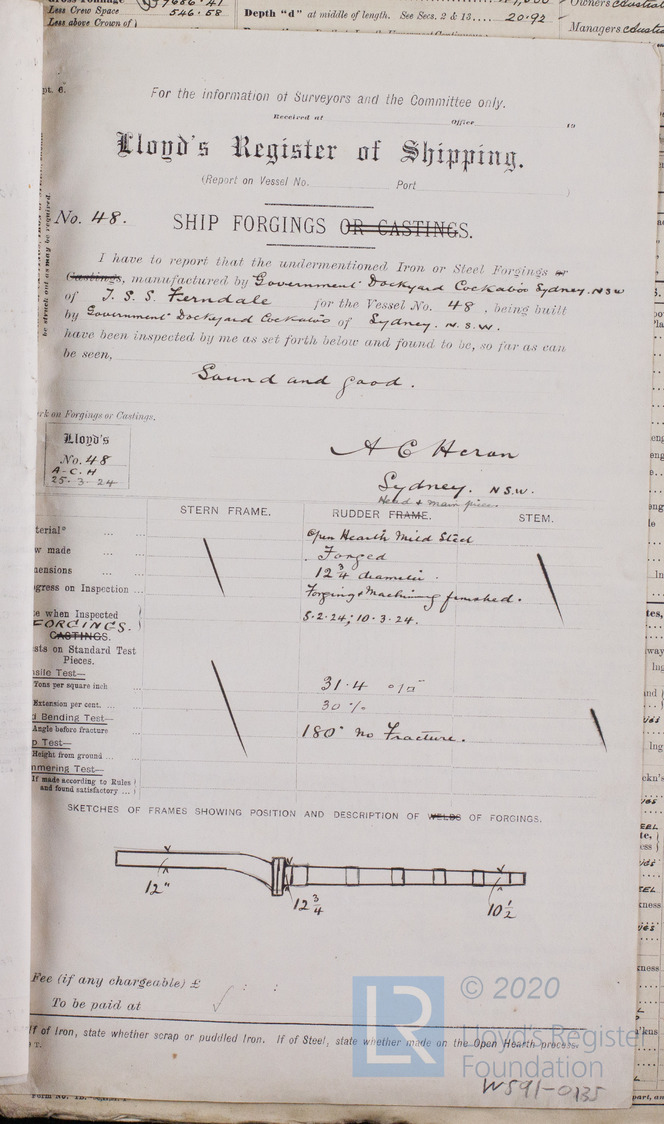 7686.41
Less Crew Space 546.58
Less above Crown of
Depth "d" at middle of length. See Secs. 2 & 13.... 20.92
Owners
Managers
pt. 6.
For the information of Surveyors and the Committee only.
Received at Office 19
Lloyd's Register of Shipping.
(Report on Vessel No. Port )
be struck out as may be required.
No. 48. SHIP FORGINGS OR CASTINGS.
I have to report that the undermentioned Iron or Steel Forgings or
Castings, manufactured by Government Dockyard Cockatoo Sydney. NSW
of T. S. S. Ferndale for the Vessel No. 48, being built
by Government Dockyard Cockatoo of Sydney. N.S.W.
have been inspected by me as set forth below and found to be, so far as can
be seen,
Sound and good.
rk on Forgings or Castings.
Lloyd's
No. 48
A-C.H
25-3-24
A C Heron
Sydney. N.S.W.
Head & main piece.
STERN FRAME. RUDDER FRAME. STEM.
terial* ... ... Open Hearth Mild Steel
w made ... ... Forged
mensions ... ... 12 3/4 diameter.
ogress on Inspection ... Forging & Machining finished.
te when Inspected 5.2.24; 10.3.24.
FORGINGS.
CASTINGS.
sts on Standard Test
Pieces.
nsile Test—
Tons per square inch 31.4
Extension per cent. ... ... 30 %
d Bending Test—
Angle before fracture ... 180° No Fracture.
p Test—
Height from ground ... ...
mmering Test—
If made according to Rules
and found satisfactory ...
SKETCHES OF FRAMES SHOWING POSITION AND DESCRIPTION OF WELDS OF FORGINGS.
12" 12 3/4 10 1/2
Fee (if any chargeable) £ : :
To be paid at
If of Iron, state whether scrap or puddled Iron. If of Steel, state whether made on the Open Hearth process.
LR © 2020
Lloyd's Register
Foundation
W591-0135